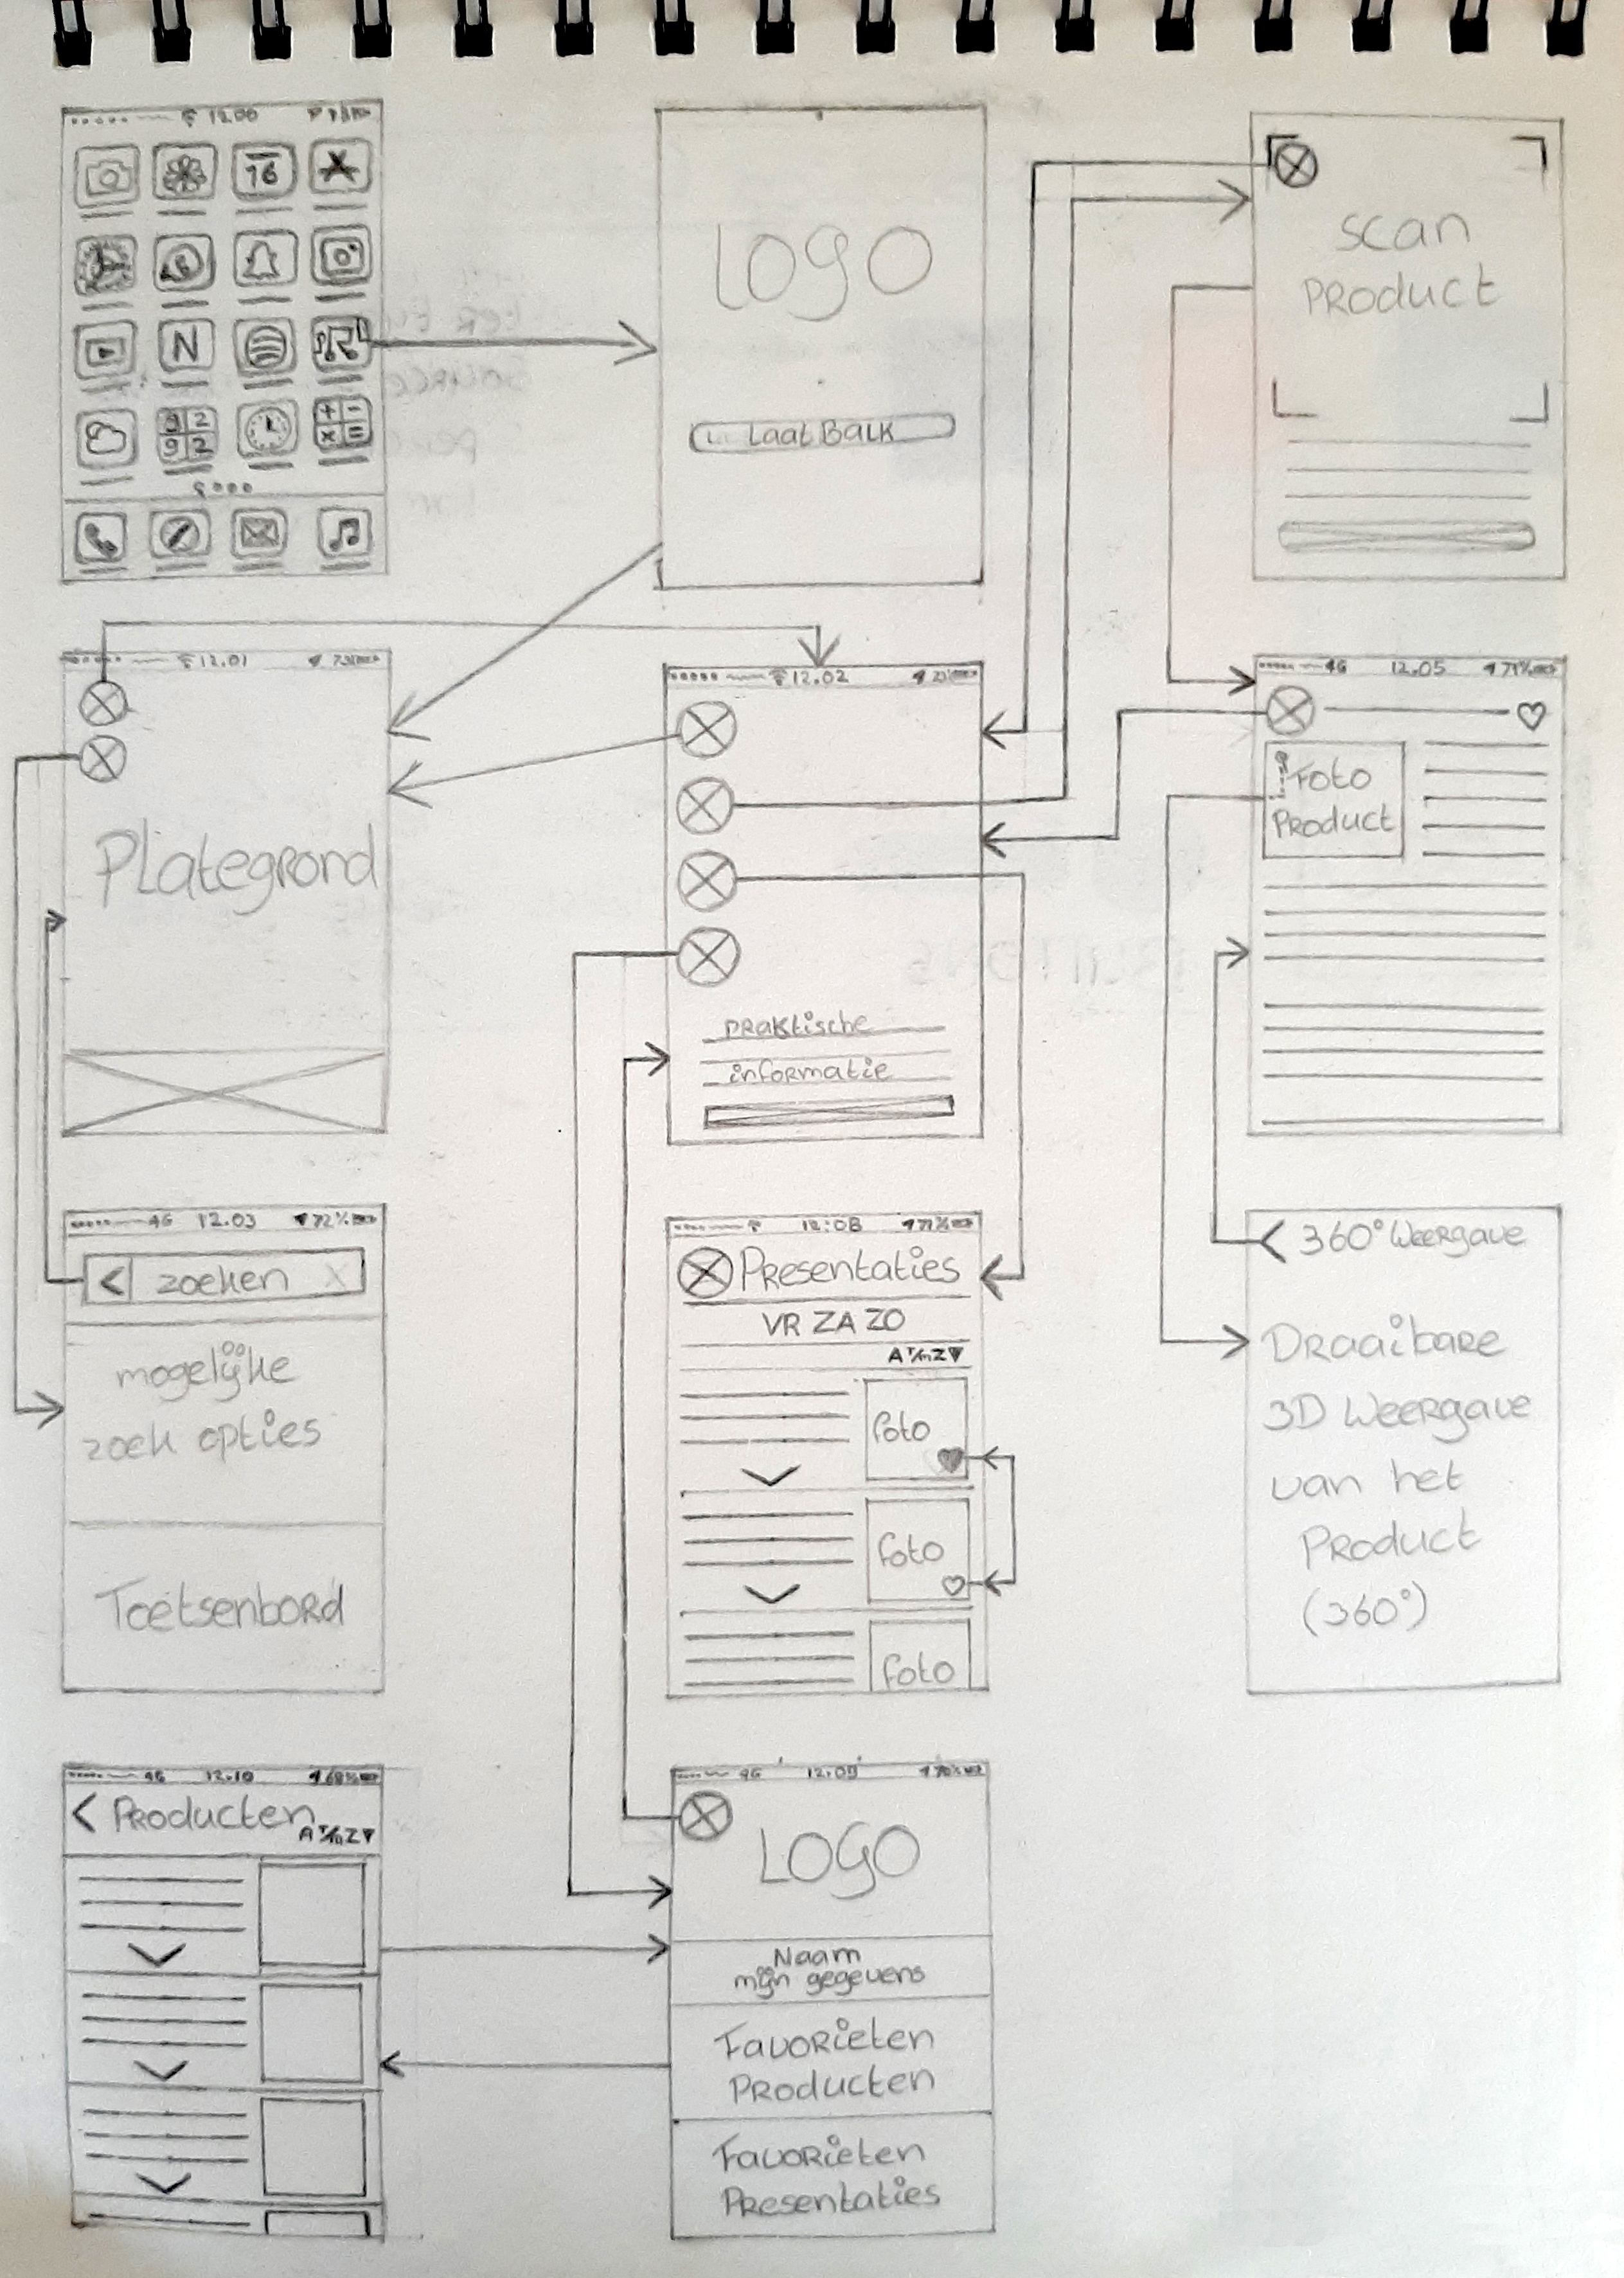 12.00
16
N
9 2
9 2
+ -
x =
LOGO
Laat Balk
scan
Product
12.01
Plategrond
12.02
praktische
informatie
4G 12.05 71%
Foto
Product
4G 12.03 72%
< zoeken X
mogelijke
zoek opties
Toetsenbord
12:08 71%
Presentaties
VR ZA ZO
A T/m Z
foto
foto
foto
< 360° Weergave
Draaibare
3D Weergave
van het
Product
(360°)
4G 12.10 68%
< Producten
A T/m Z
4G 12.09 70%
LOGO
Naam
mijn gegevens
Favorieten
Producten
Favorieten
Presentaties